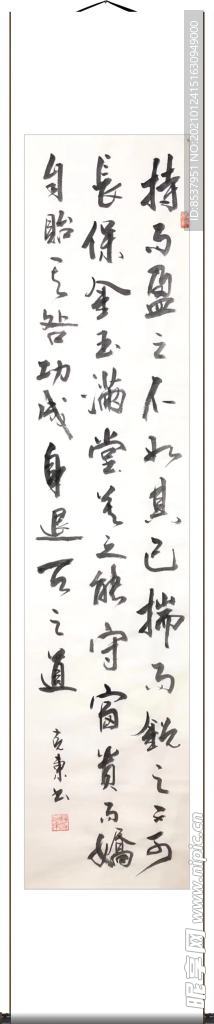 持而盈之不如其已揣而銳之不可
長保金玉滿堂莫之能守富貴而嬌
自貽其咎功成身退天之道
克東书
ID:8537951 NO:20210124151630949000
昵享网 www.nipic.cn